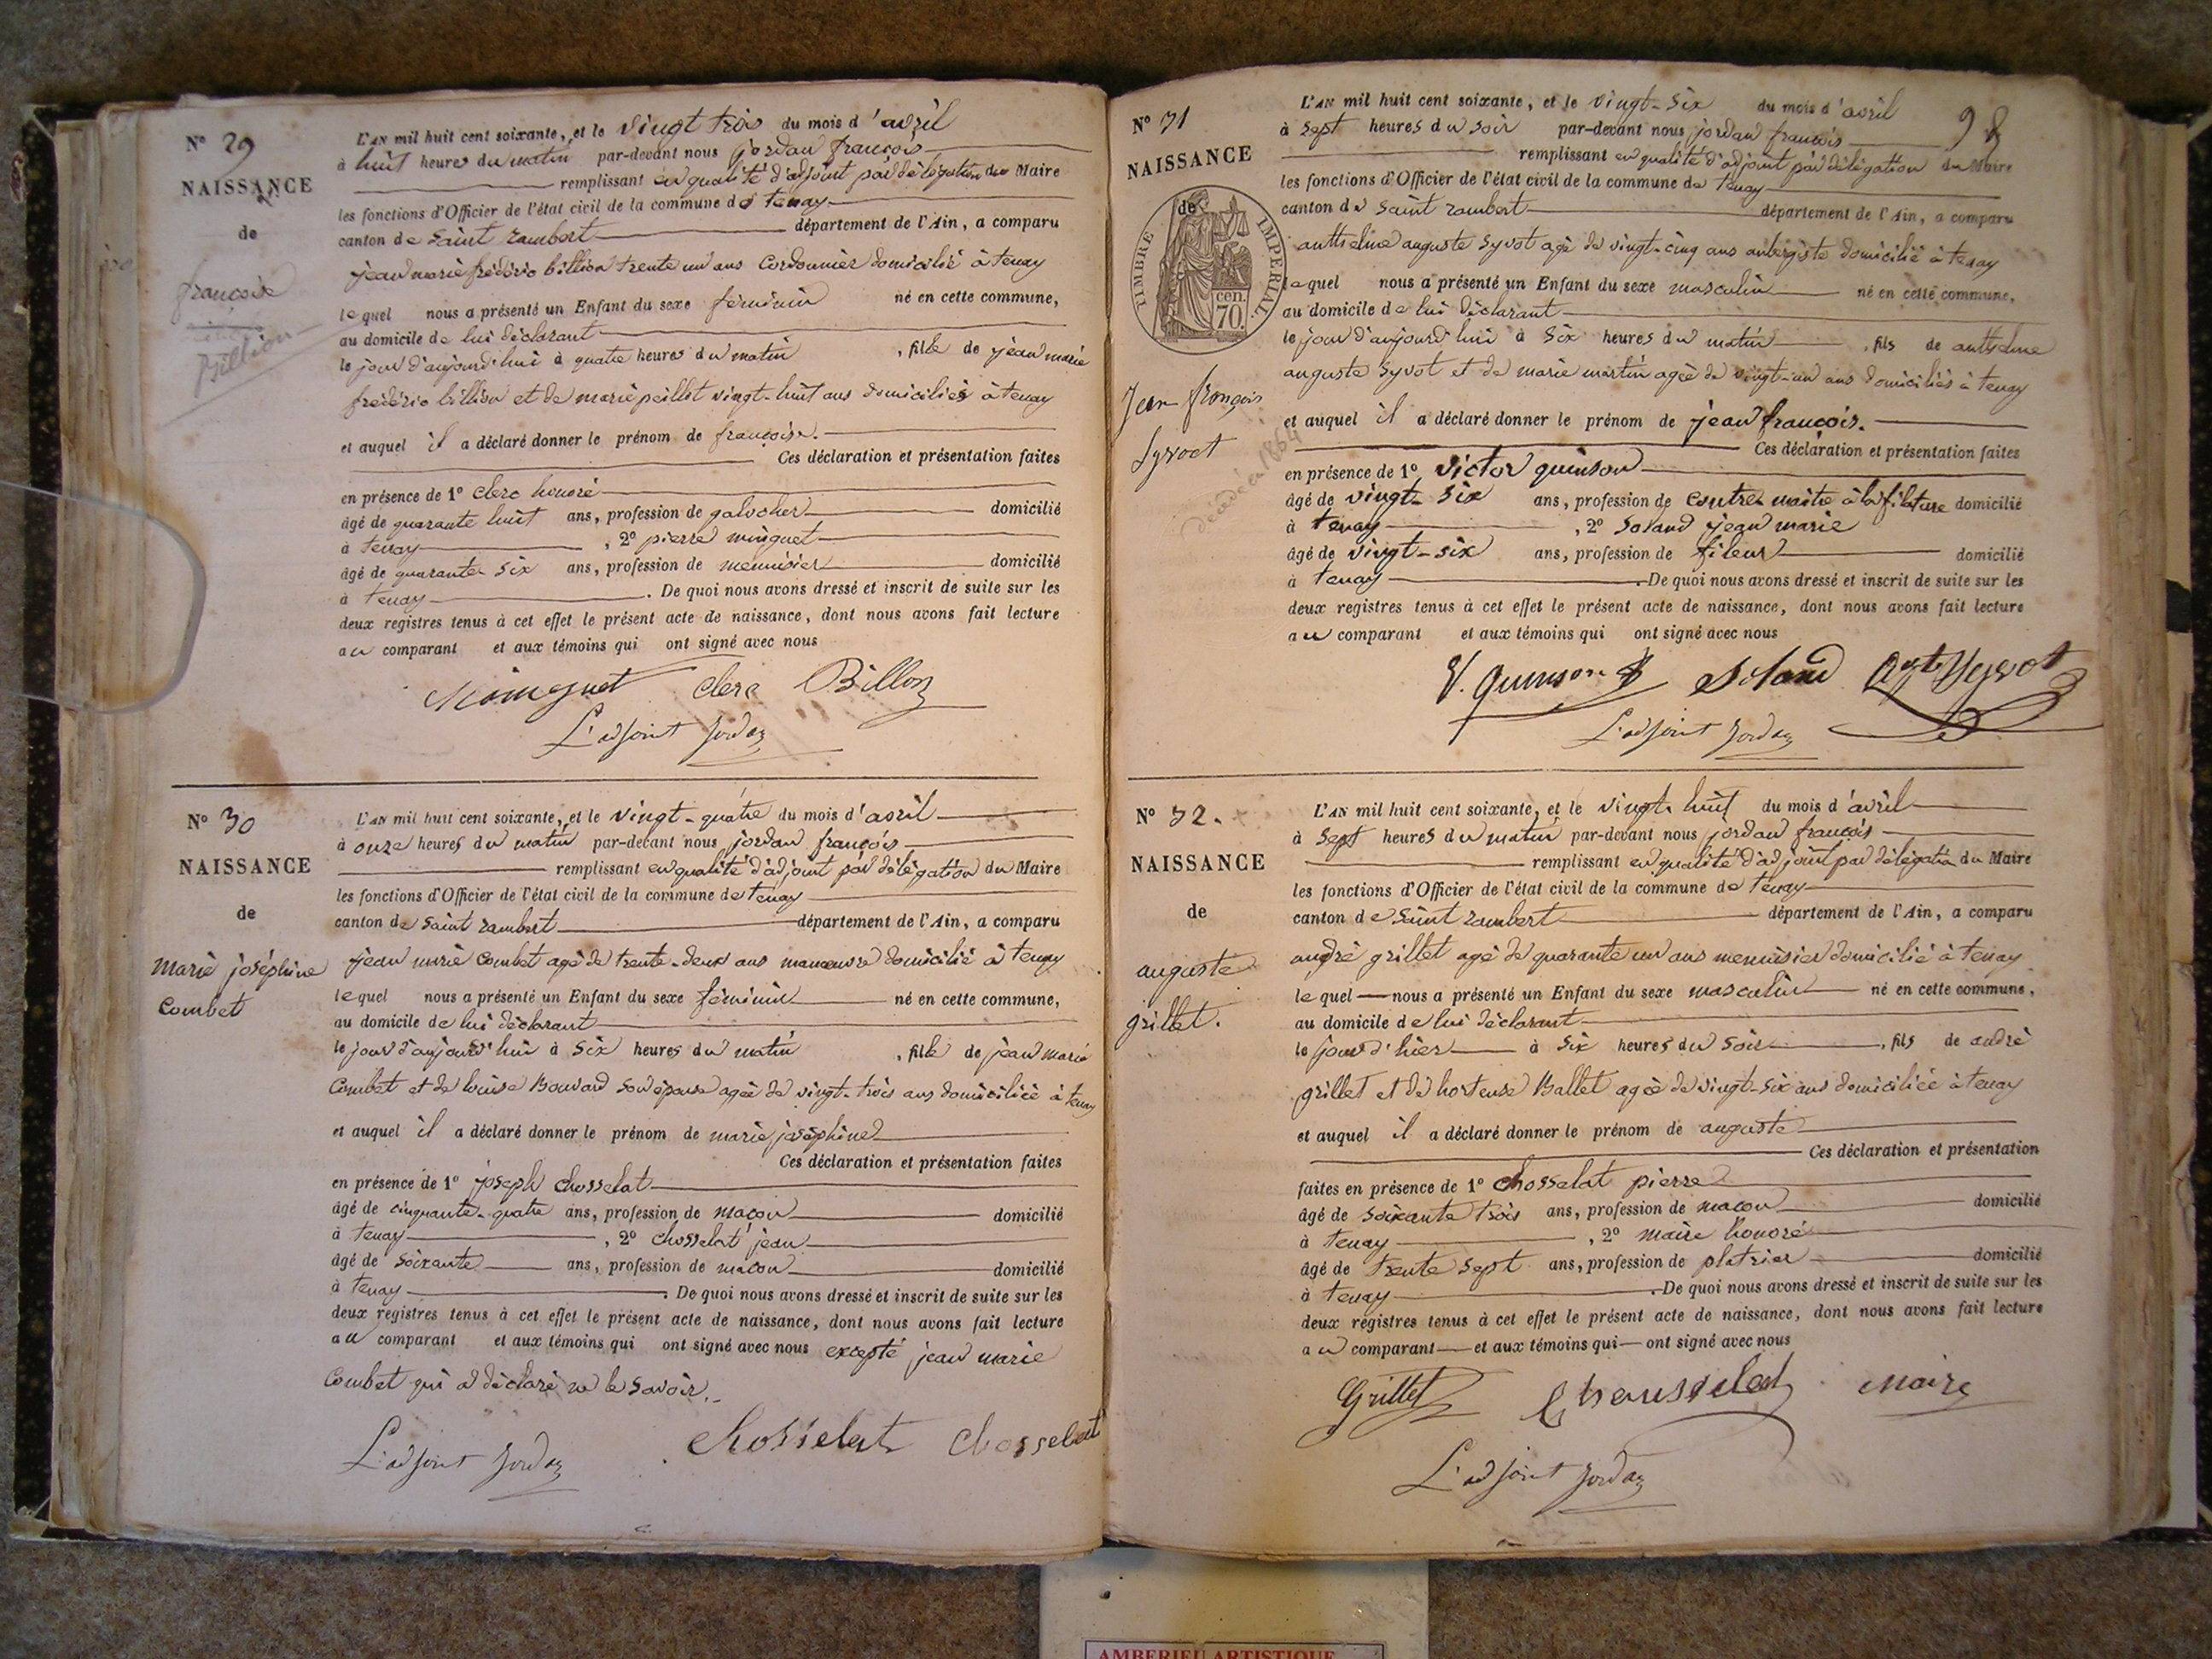 N° 29
NAISSANCE
de
françoise
Billion
L'AN mil huit cent soixante, et le vingt trois du mois d'avril
à huit heures du matin par-devant nous jordan françois
remplissant en qualité d'adjoint par délégation du Maire
les fonctions d'Officier de l'état civil de la commune de tenay
canton de saint rambert département de l'Ain, a comparu
jean marie frédéric billion trente un ans cordonnier domicilié à tenay
lequel nous a présenté un Enfant du sexe féminin né en cette commune,
au domicile de lui déclarant
le jour d'aujourd'hui à quatre heures du matin , fille de jean marie
frédéric billion et de marie peillet vingt-huit ans domiciliés à tenay
et auquel il a déclaré donner le prénom de françoise.
Ces déclaration et présentation faites
en présence de 1° clerc honoré
âgé de quarante huit ans, profession de galocher domicilié
à tenay , 2° pierre minguet
âgé de quarante six ans, profession de menuisier domicilié
à tenay . De quoi nous avons dressé et inscrit de suite sur les
deux registres tenus à cet effet le présent acte de naissance, dont nous avons fait lecture
au comparant et aux témoins qui ont signé avec nous
Clerc Billon
L'adjoint Jordan
N° 30
NAISSANCE
de
marie joséphine
Combet
L'AN mil huit cent soixante, et le vingt-quatre du mois d'avril
à onze heures du matin par-devant nous jordan françois
remplissant en qualité d'adjoint par délégation du Maire
les fonctions d'Officier de l'état civil de la commune de tenay
canton de saint rambert département de l'Ain, a comparu
jean marie combet agé de trente-deux ans manœuvre domicilié à tenay
lequel nous a présenté un Enfant du sexe féminin né en cette commune,
au domicile de lui déclarant
le jour d'aujourd'hui à six heures du matin , fille de jean marie
Combet et de louise Bouvard son épouse agée de vingt-trois ans domiciliée à tenay
et auquel il a déclaré donner le prénom de marie joséphine
Ces déclaration et présentation faites
en présence de 1° joseph chosselat
âgé de cinquante-quatre ans, profession de maçon domicilié
à tenay , 2° chosselat jean
âgé de soixante ans, profession de maçon domicilié
à tenay . De quoi nous avons dressé et inscrit de suite sur les
deux registres tenus à cet effet le présent acte de naissance, dont nous avons fait lecture
au comparant et aux témoins qui ont signé avec nous excepté jean marie
Combet qui a déclaré ne le savoir.
Chosselat Chosselat
L'adjoint Jordan
98
N° 31
NAISSANCE
de
TIMBRE IMPERIAL
cen.
70.
Jean françois
Syvoct
décédé en 1864
L'AN mil huit cent soixante, et le vingt-six du mois d'avril
à sept heures du soir par-devant nous jordan françois
remplissant en qualité d'adjoint par délégation du Maire
les fonctions d'Officier de l'état civil de la commune de tenay
canton de saint rambert département de l'Ain, a comparu
anthelme auguste syvot agé de vingt-cinq ans aubergiste domicilié à tenay
lequel nous a présenté un Enfant du sexe masculin né en cette commune,
au domicile de lui déclarant
le jour d'aujourd'hui à six heures du matin , fils de anthelme
auguste syvot et de marie martin agée de vingt-un ans domiciliés à tenay
et auquel il a déclaré donner le prénom de jean françois.
Ces déclaration et présentation faites
en présence de 1° victor quinson
âgé de vingt-six ans, profession de contre-maitre à la filature domicilié
à tenay , 2° soland jean marie
âgé de vingt-six ans, profession de fileur domicilié
à tenay . De quoi nous avons dressé et inscrit de suite sur les
deux registres tenus à cet effet le présent acte de naissance, dont nous avons fait lecture
au comparant et aux témoins qui ont signé avec nous
V. Quinson Soland
L'adjoint Jordan
N° 32.
NAISSANCE
de
auguste
grillet.
L'AN mil huit cent soixante, et le vingt-huit du mois d'avril
à sept heures du matin par-devant nous jordan françois
remplissant en qualité d'adjoint par délégation du Maire
les fonctions d'Officier de l'état civil de la commune de tenay
canton de saint rambert département de l'Ain, a comparu
andré grillet agé de quarante un ans menuisier domicilié à tenay
lequel nous a présenté un Enfant du sexe masculin né en cette commune,
au domicile de lui déclarant
le jour d'hier à six heures du soir , fils de andré
grillet et de hortense Ballet agée de vingt-six ans domiciliée à tenay
et auquel il a déclaré donner le prénom de auguste
Ces déclaration et présentation
faites en présence de 1° chosselat pierre
âgé de soixante trois ans, profession de maçon domicilié
à tenay , 2° maire honoré
âgé de trente sept ans, profession de platrier domicilié
à tenay . De quoi nous avons dressé et inscrit de suite sur les
deux registres tenus à cet effet le présent acte de naissance, dont nous avons fait lecture
au comparant et aux témoins qui ont signé avec nous
Grillet Chausselat Maire
L'adjoint Jordan
AMBERIEU ARTISTIQUE